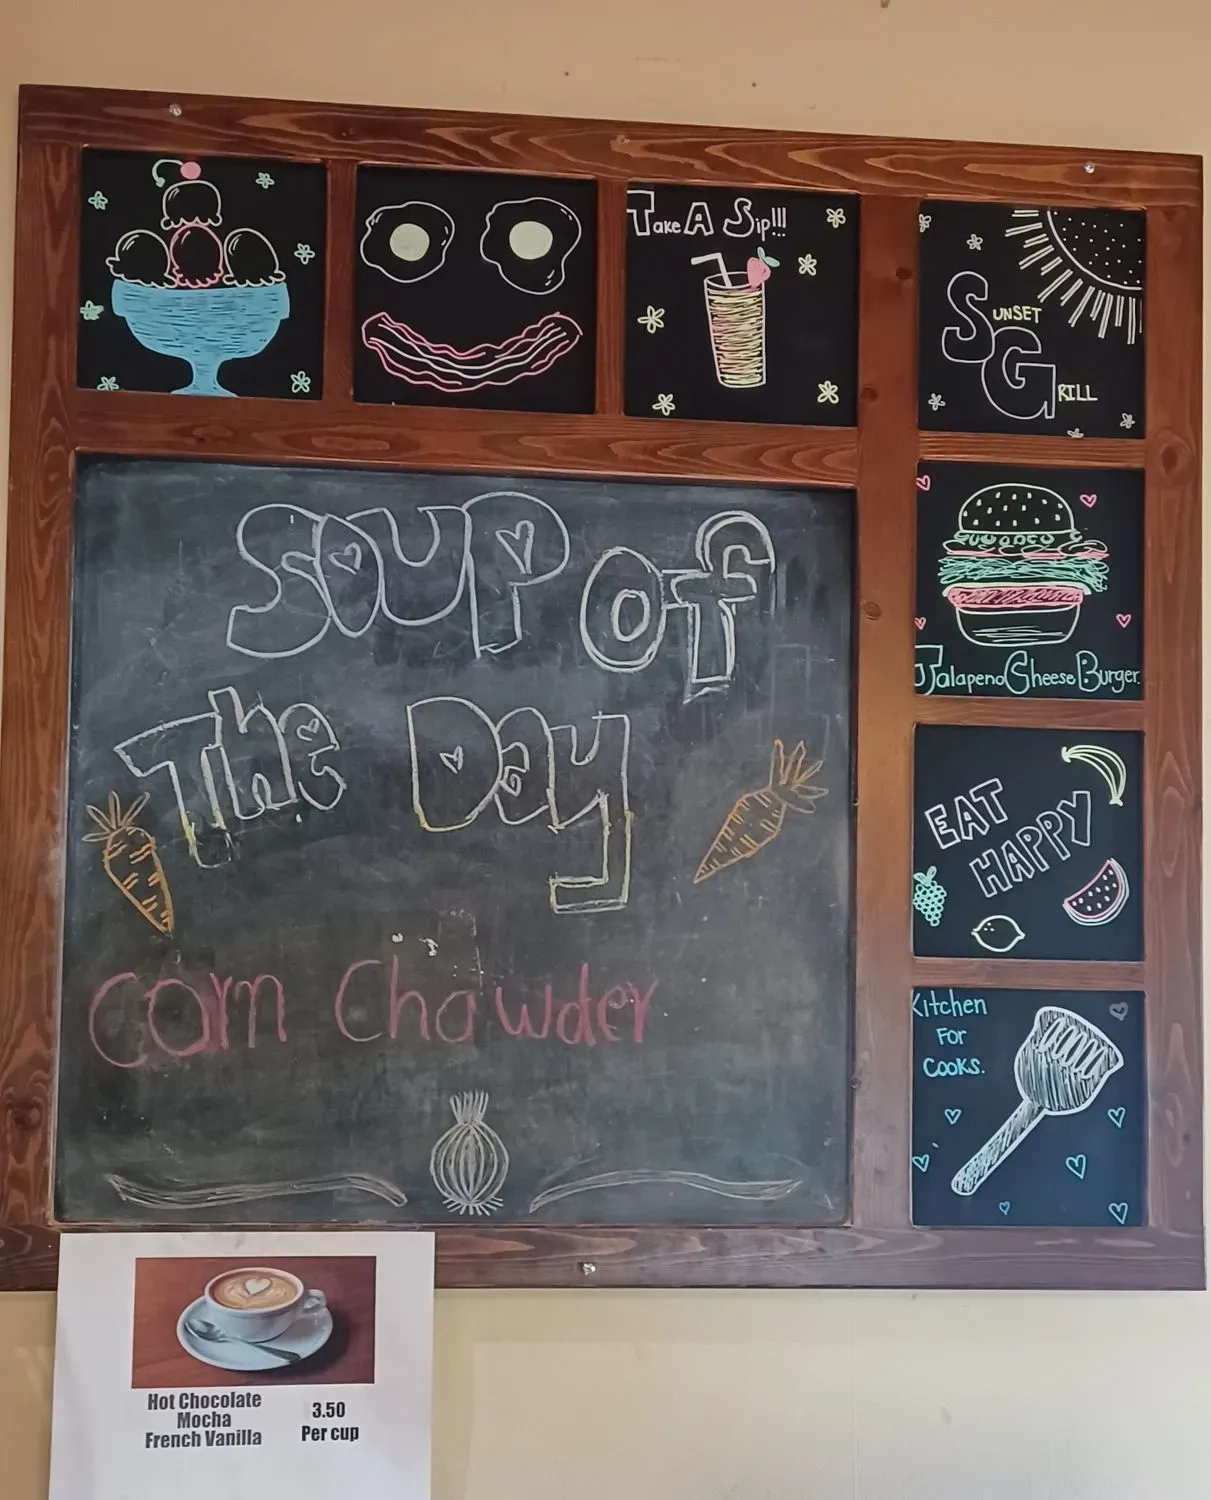 Take A Sip!!!
Sunset
Grill
Soup Of
The Day
Corn Chowder
Jalapeno Cheese Burger
EAT
HAPPY
Kitchen
For
Cooks.
Hot Chocolate
Mocha
French Vanilla
3.50
Per cup